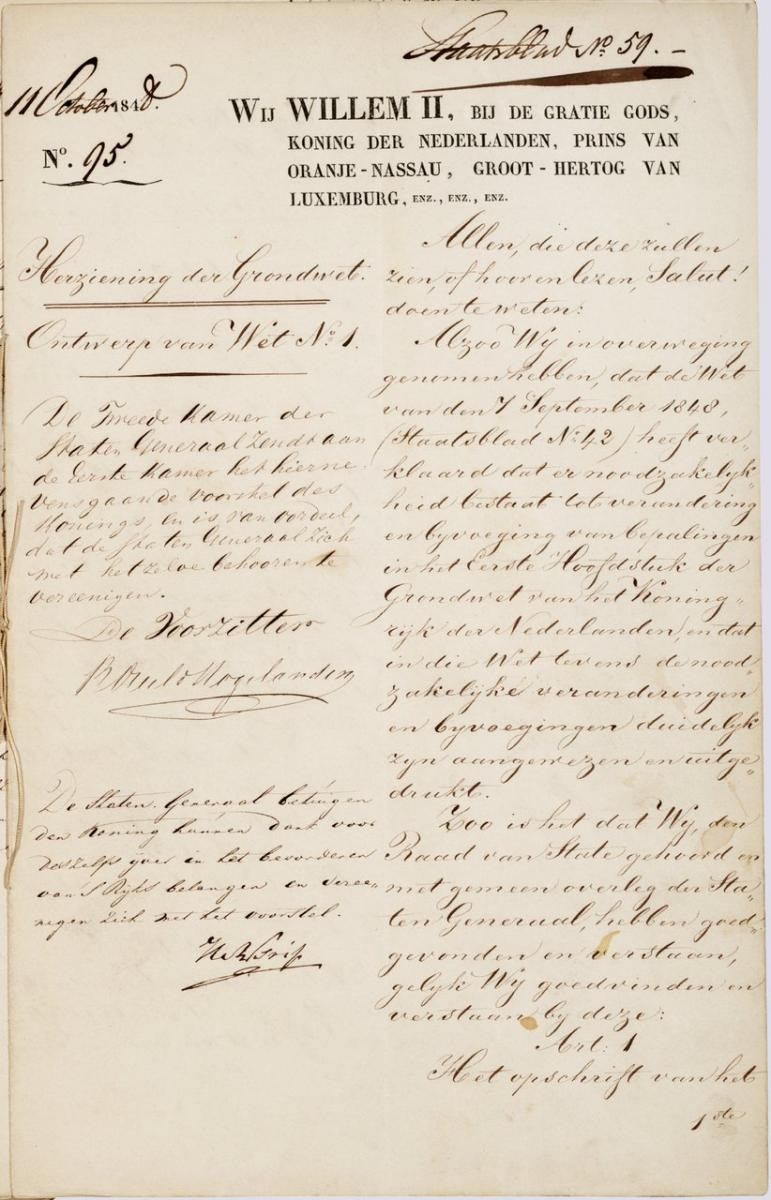 Staatsblad No 59. —
11 October 1848.
No. 95.
WIJ WILLEM II, BIJ DE GRATIE GODS,
KONING DER NEDERLANDEN, PRINS VAN
ORANJE-NASSAU, GROOT-HERTOG VAN
LUXEMBURG, ENZ., ENZ., ENZ.
Herziening der Grondwet.
Ontwerp van Wet No 1.
De Tweede Kamer der
Staten Generaal zendt aan
de Eerste Kamer het hierne
vensgaande voorstel des
Konings, en is van oordeel,
dat de Staten Generaal zich
met hetzelve behooren te
vereenigen.
De Voorzitter
De Staten Generaal betuigen
den Koning hunnen dank voor
deszelfs yver in het bevorderen
van 's Ryks belangen en veree=
nigen zich met het voorstel.
Allen, die deze zullen
zien, of hooren lezen, Salut!
doen te weten:
Alzoo Wy in overweging
genomen hebben, dat de Wet
van den 7 September 1848,
(Staatsblad No 42) heeft ver=
klaard dat er noodzakelyk=
heid bestaat tot verandering
en byvoeging van bepalingen
in het Eerste Hoofdstuk der
Grondwet van het Koning=
ryk der Nederlanden, en dat
in die Wet tevens de nood=
zakelyke veranderingen
en byvoegingen duidelyk
zyn aangewezen en uitge=
drukt.
Zoo is het dat Wy, den
Raad van State gehoord en
met gemeen overleg der Sta=
ten Generaal, hebben goed=
gevonden en verstaan,
gelyk Wy goedvinden en
verstaan by deze:
Art: 1
Het opschrift van het
1ste